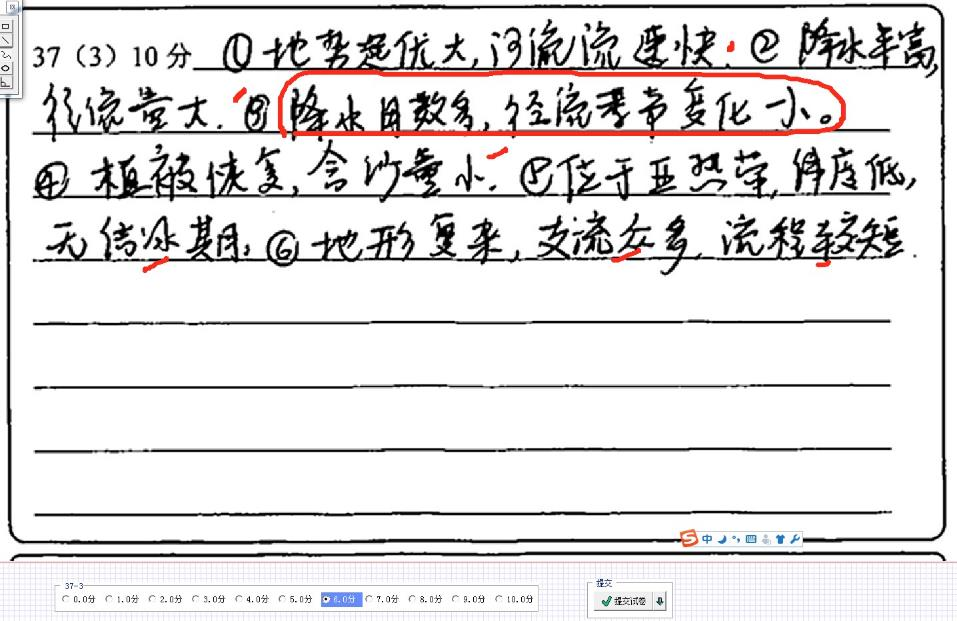 37（3）10分 ①地势起伏大,河流流速快.②降水丰富,
径流量大.③降水月数多,径流季节变化小。
④植被恢复,含沙量小.⑤位于亚热带,纬度低,
无结冰期,⑥地形复杂,支流众多,流程较短.
中
37-3
0.0分 1.0分 2.0分 3.0分 4.0分 5.0分 6.0分 7.0分 8.0分 9.0分 10.0分
提交
提交试卷